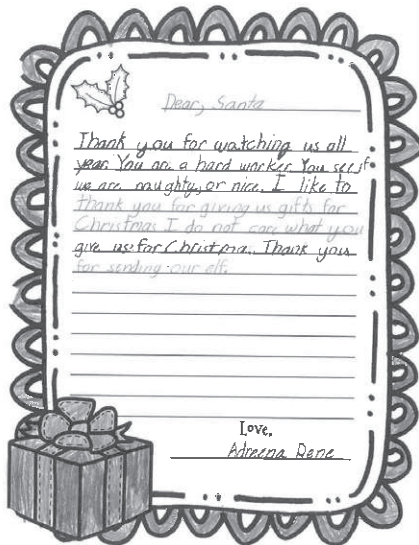 Dear, Santa
Thank you for watching us all
year. You are a hard worker You see if
we are naughty, or nice. I like to
thank you for giving us gifts for
Christmas I do not care what you
give us for Christma. Thank you
for sending our elf.
Love,
Adreena Rene